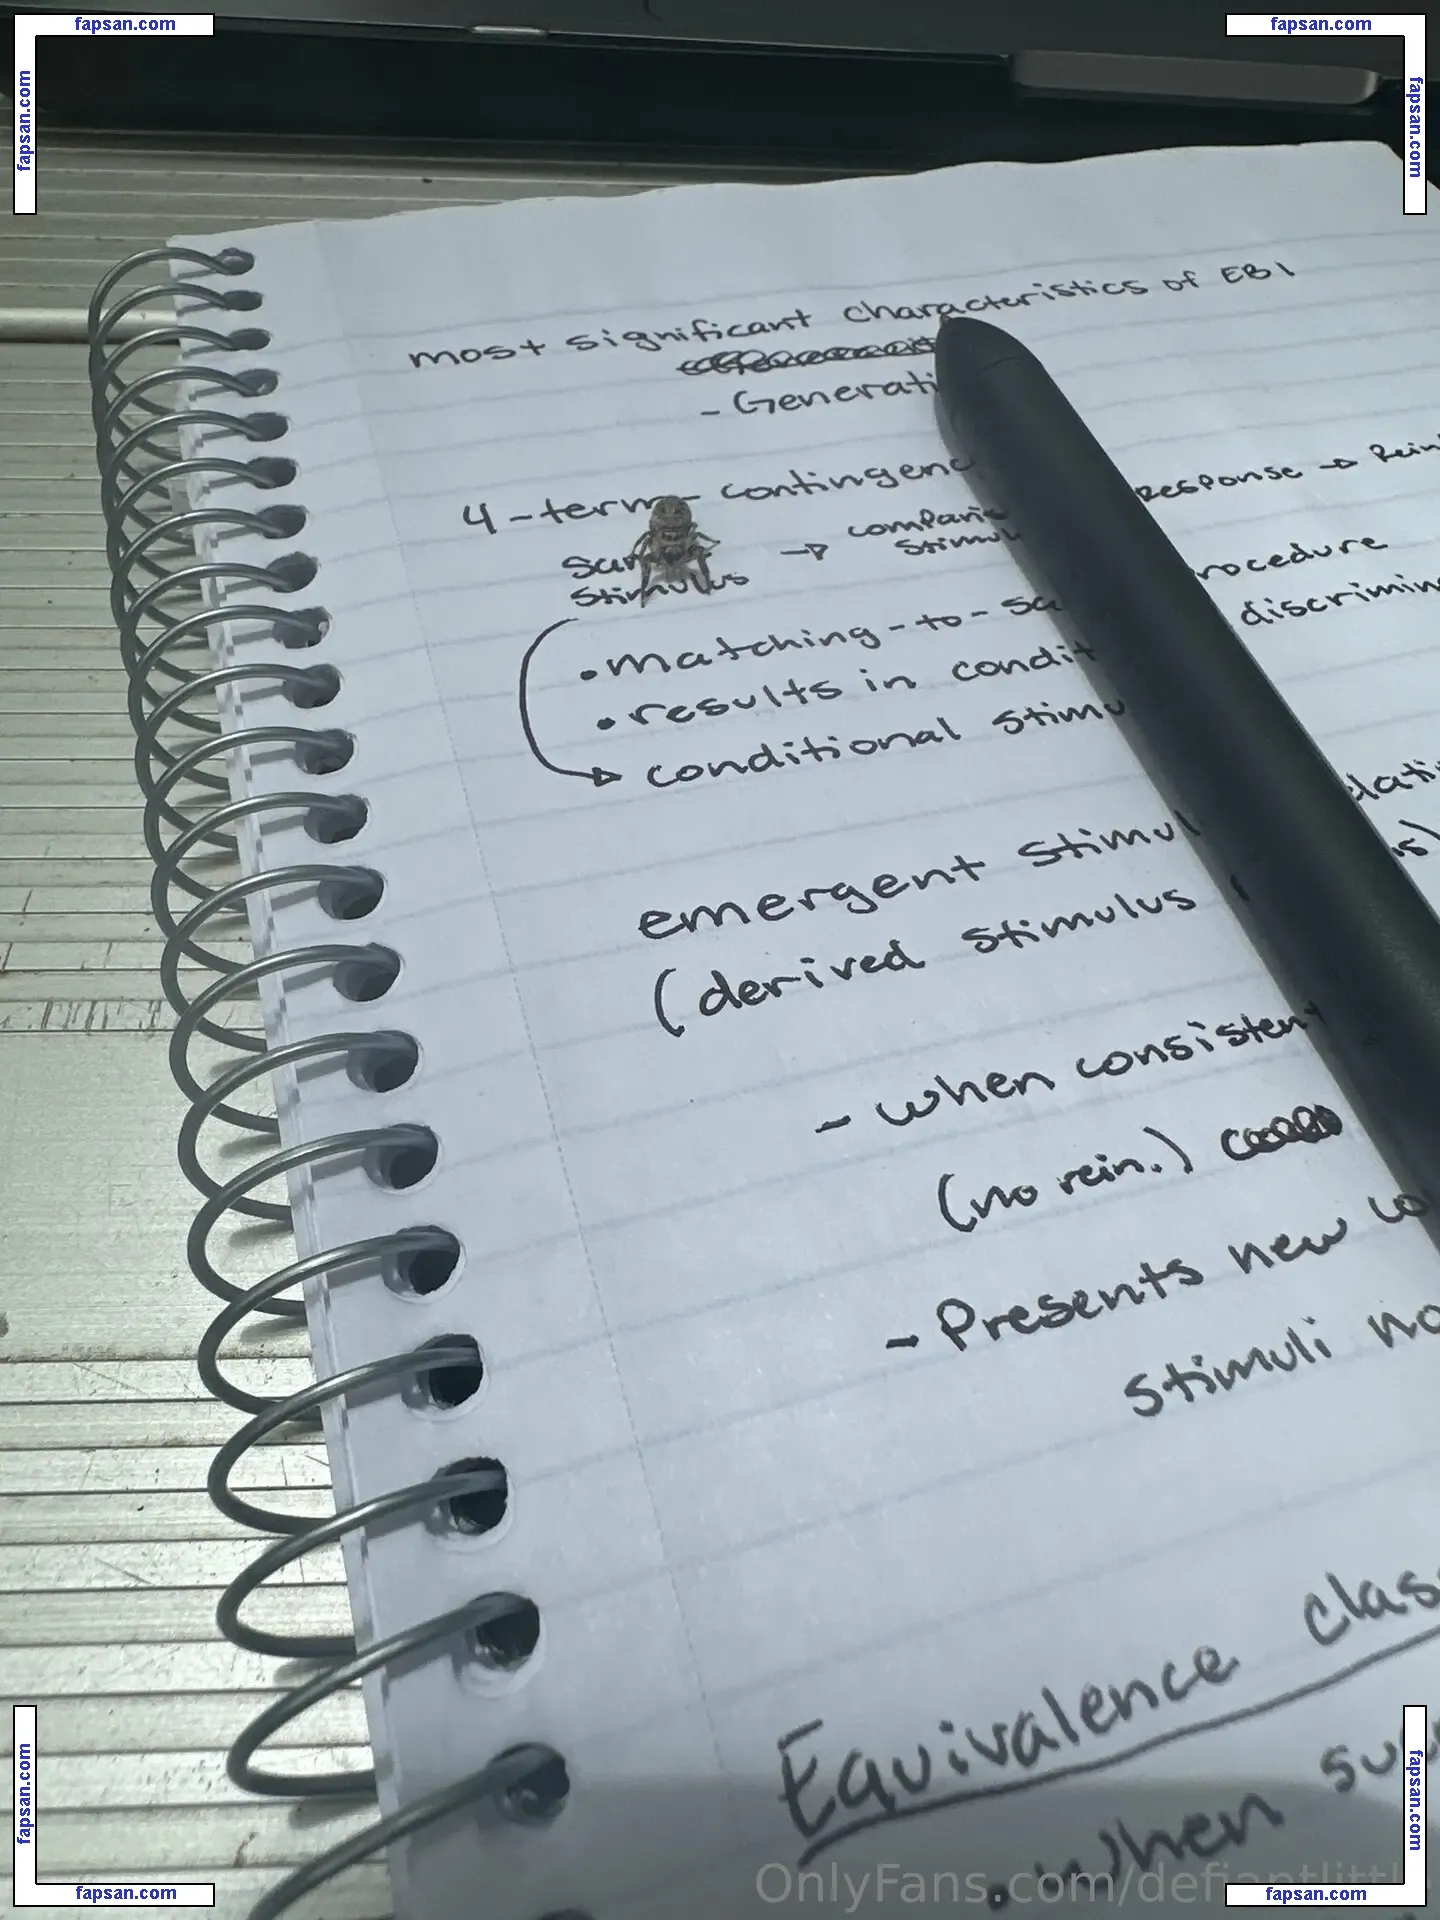 fapsan.com
fapsan.com
fapsan.com
fapsan.com
most significant characteristics of EBI
- Generati
4-term contingenc
stimulus → comparis stimul
response → Rein
• matching-to-sa
rocedure
• results in condit
discrimin
conditional stimu
emergent stimul
lati
(derived stimulus
- when consistent
(no rein.)
- Presents new co
stimuli no
Equivalence class
• when suc
OnlyFans.com/defiantlittle
fapsan.com
fapsan.com
fapsan.com
fapsan.com